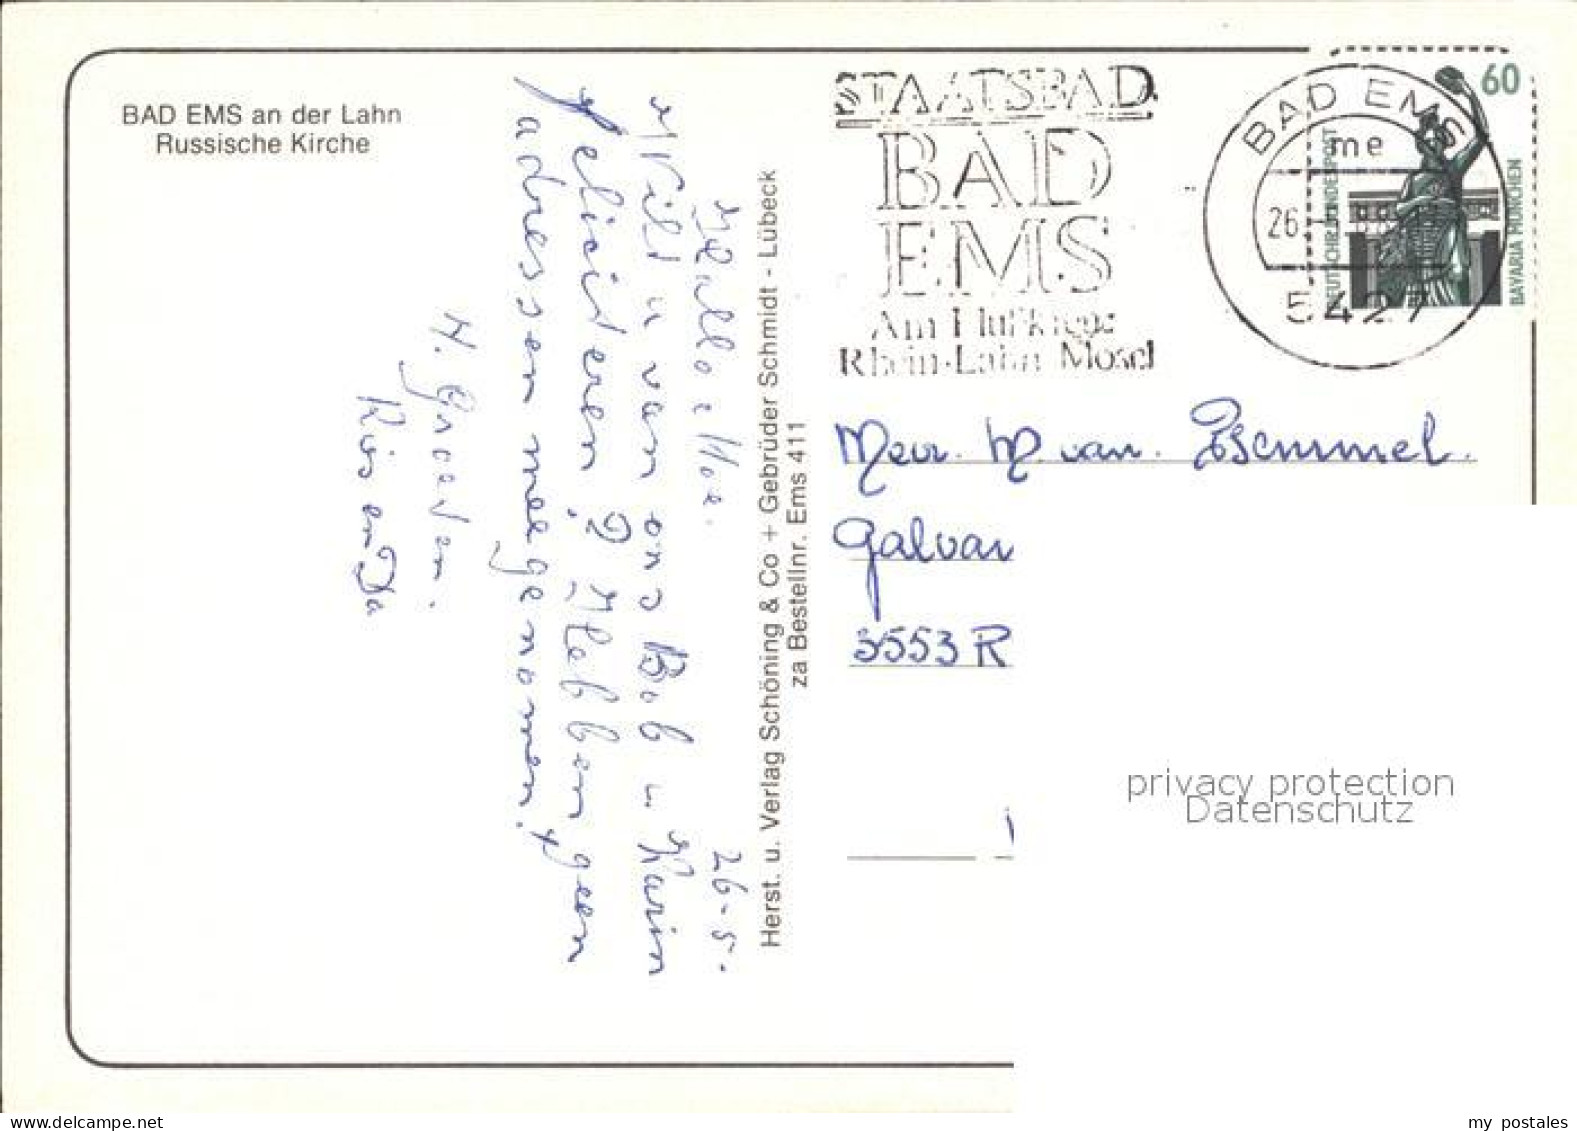 BAD EMS an der Lahn
Russische Kirche
26-5.
Hallo Moe.
Wilt u van ons Bob u. Karin
feliciteren? Hebben geen
adressen meegenomen.
H. Groeten.
Ris en Da
Herst. u. Verlag Schöning & Co + Gebrüder Schmidt - Lübeck
za Bestellnr. Ems 411
STAATSBAD
BAD
EMS
Am Flußkreuz
Rhein-Lahn Mosel
BAD EMS
me
26.
5427
60
DEUTSCHE BUNDESPOST
BAVARIA MÜNCHEN
Mevr. M. van. Bemmel.
Galvan
3553 R
privacy protection
Datenschutz
my postales